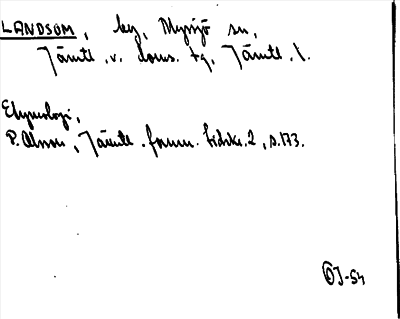 LANDSOM, by, Myssjö sn,
Jämtl. v. doms. tg, Jämtl. l.
Etymologi,
P. Olsson, Jämtl. fornm. tidskr. 2, s. 173.
OJ-54